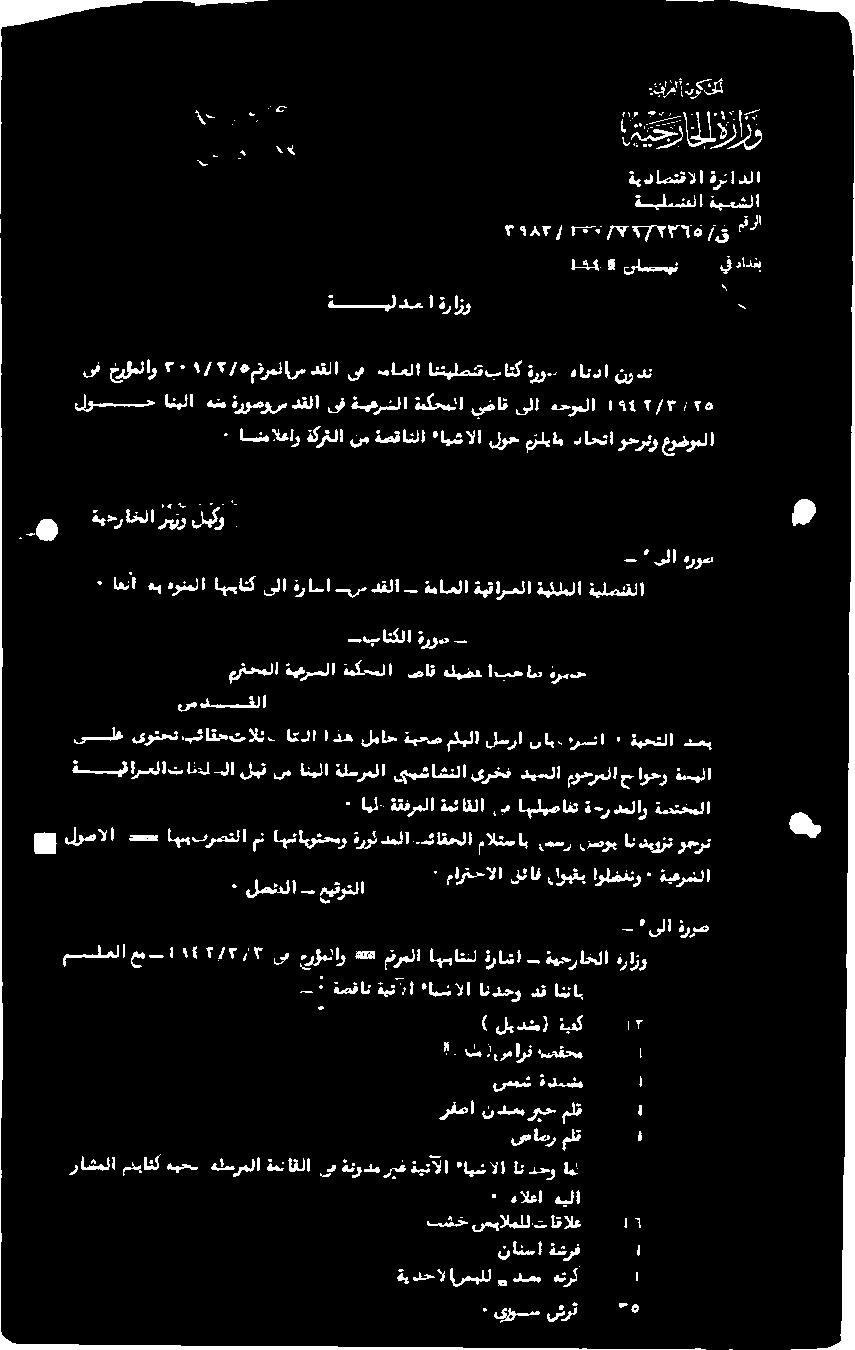 الحكومة العراقية
وزارة الخارجية
الدائرة الاقتصادية
الشعبة القنصلية
الرقم ق/٢٣٦٥/٧٦/١٠٠/٣٩٨٣
بغداد في نيسان ١٩٤
وزارة العدلية
ندون ادناه صورة كتاب قنصليتنا العامة في القدس المرقم ٣٠٩/٢/٥ والمؤرخ في
١٩٤٢/٣/٢٥ الموجه الى قاضي المحكمة الشرعية في القدس وصورة منه الينا حول
الموضوع ونرجو اتخاذ مايلزم حول الاشياء الناقصة من التركة واعلامنا ٠
وكيل وزير الخارجية
صورة الى ـ
القنصلية الملكية العراقية العامة ـ القدس ـ اشارة الى كتابها المنوه به آنفا ٠
ـ صورة الكتاب ـ
حضرة صاحب الفضيلة قاضي المحكمة الشرعية المحترم
القدس
بعد التحية ٠ اتشرف بان ارسل اليكم صحبة حامل هذا الكتاب ثلاث حقائب تحتوى على
البسة وحوائج المرحوم السيد فخرى النشاشيبي المرسلة الينا من قبل السلطات العراقية
المختصة والمدرجة تفاصيلها في القائمة المرفقة طيا ٠
نرجو تزويدنا بوصل رسمي باستلام الحقائب المذكورة ومحتوياتها ثم التصرف بها الاصول
الشرعية ٠ وتفضلوا بقبول فائق الاحترام ٠
التوقيع ـ القنصل ٠
صورة الى ـ
وزارة الخارجية ـ اشارة لكتابها المرقم والمؤرخ في ١٩٤٢/٣/٣ ـ مع العلم
باننا قد وجدنا الاشياء الآتية ناقصة : ـ
١٢ كفية (منديل)
١ محفظة
١ قلم حبر معدن اصفر
١ قلم رصاص
كما وجدنا الاشياء الآتية غير مدونة في القائمة المرسلة صحبة كتابكم المشار
اليه اعلاه ٠
١٦ علاقات للملابس خشب
١ فرشة أسنان
١ كرته معدن للبس الاحذية
٣٥ قرش سوري ٠